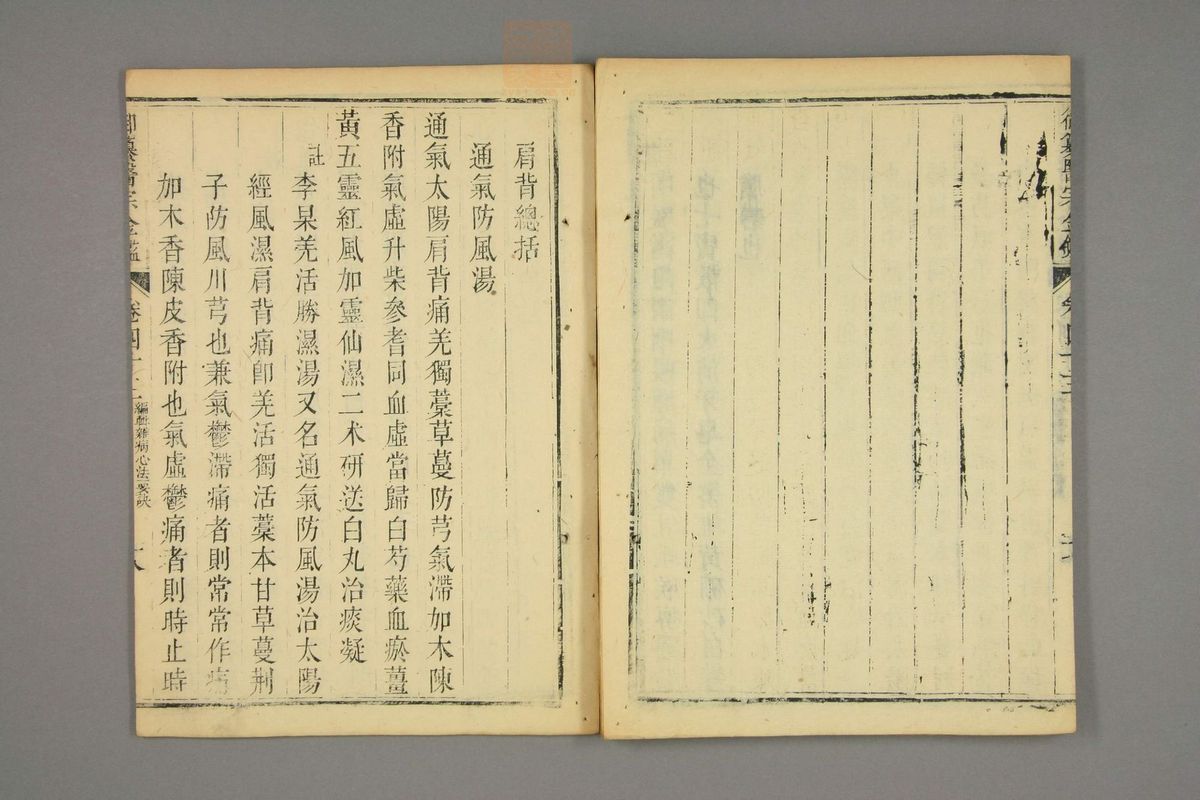 御纂醫宗金鑑 卷四十三
肩背總括
通氣防風湯
通氣太陽肩背痛羌獨藁草蔓防芎氣滯加木陳
香附氣虛升柴參耆同血虛當歸白芍藥血瘀薑
黃五靈紅風加靈仙濕二朮研送白丸治痰凝
註李杲羌活勝濕湯又名通氣防風湯治太陽
經風濕肩背痛卽羌活獨活藁本甘草蔓荆
子防風川芎也兼氣鬱滯痛者則常常作痛
加木香陳皮香附也氣虛鬱痛者則時止時
御纂醫宗金鑑 卷四十三 編輯雜病心法要訣 十八